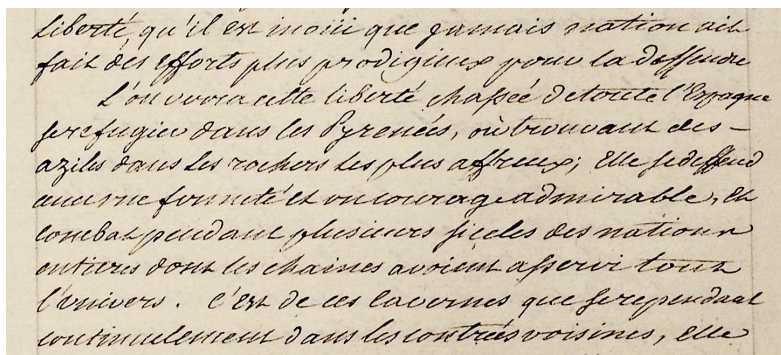 liberté, qu'il est inoüi que jamais nation ait
fait des efforts plus prodigieux pour la deffendre
L'on verra cette liberté chassée de toute l'Espagne
se refugier dans les Pyrenées, où trouvant des -
aziles dans les rochers les plus affreux; Elle se deffend
avec une fermeté et un courage admirable, Et
combat pendant plusieurs siecles des nations
entieres dont les chaines avoient asservi tout
l'univers. C'est de ces cavernes que se rependant
continuelement dans les contrées voisines, elle